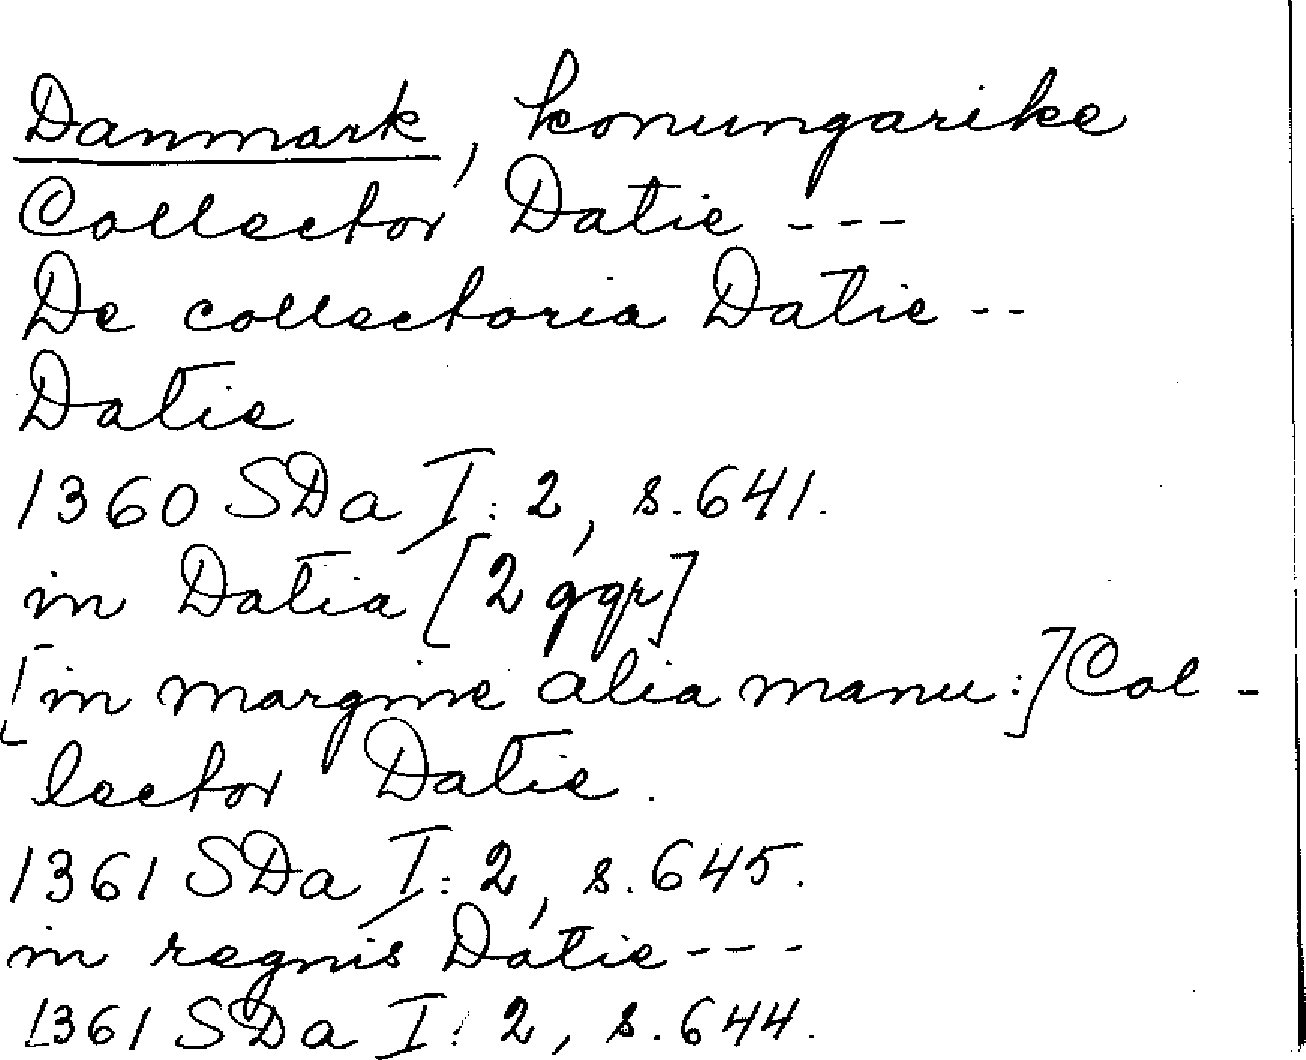 Danmark, konungarike
Collector Datie ---
De collectoria Datie --
Datie
1360 SDa I:2, s.641.
in Datia [2 ggr]
[in margine alia manu:] Col-
lector Datie.
1361 SDa I:2, s.645.
in regnis Datie ---
1361 SDa I:2, s.644.